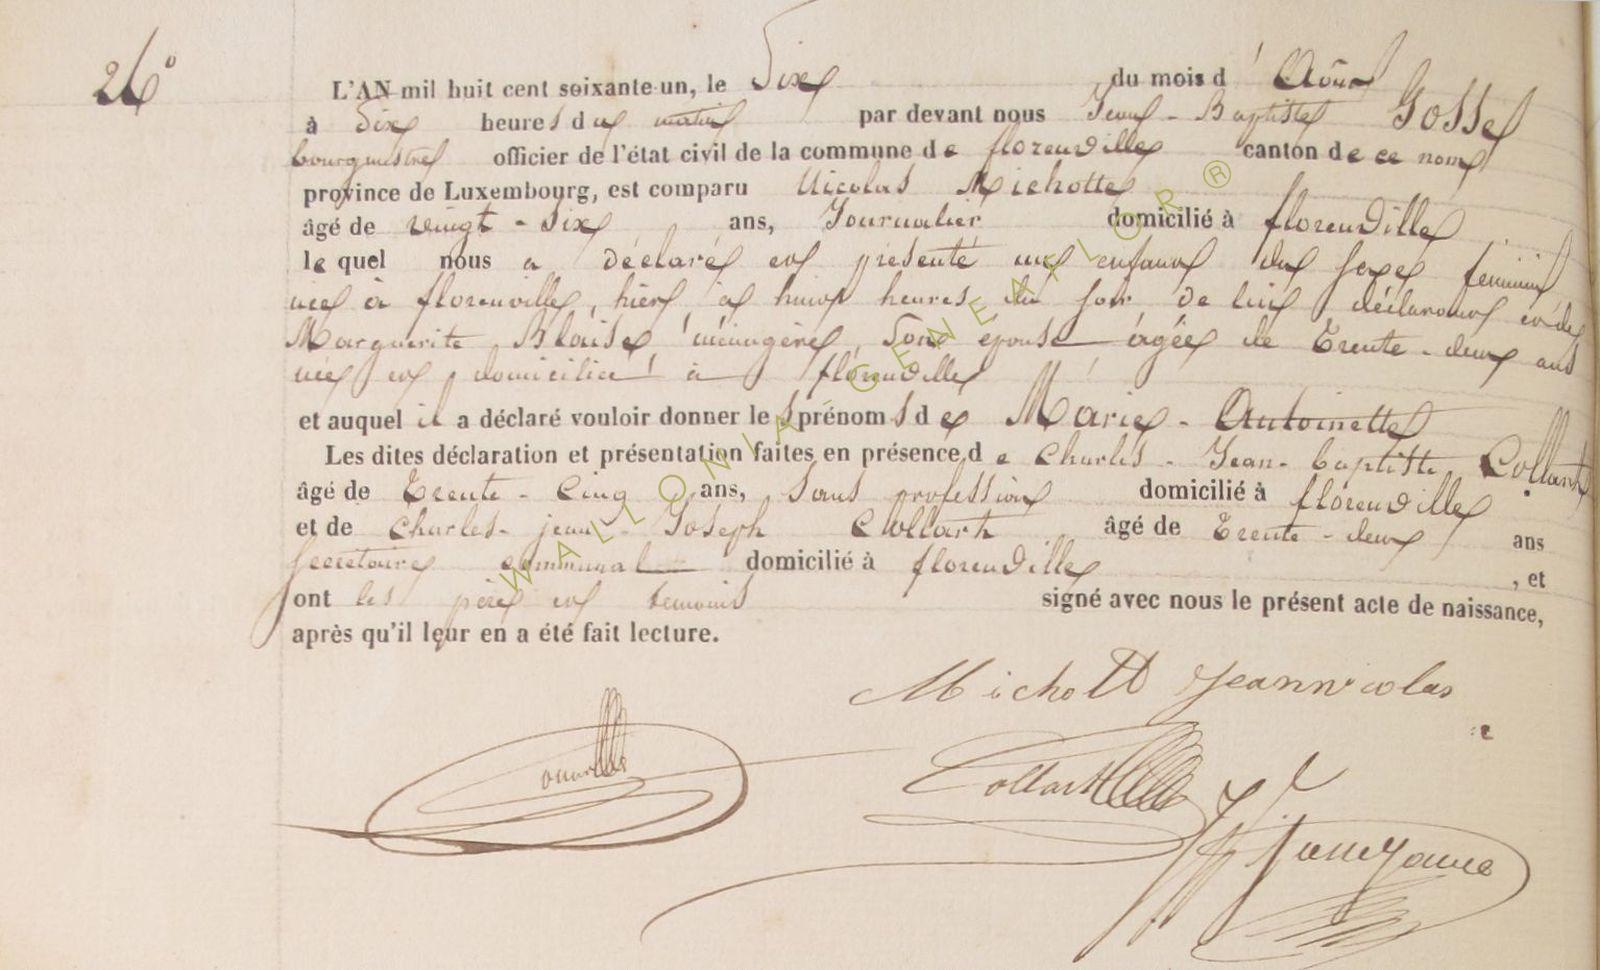 26°
L'AN mil huit cent soixante-un, le Six du mois d'Août
à Six heures du matin par devant nous Jean-Baptiste Gosse
bourgmestre officier de l'état civil de la commune de florenville canton de ce nom
province de Luxembourg, est comparu Nicolas Michotte
âgé de vingt-six ans, Journalier domicilié à florenville
le quel nous a déclaré et présenté un enfant du sexe feminin
née à florenville, hier à huit heures du soir de lui déclarant et de
Marguerite Blaise ménagère, son epouse agée de Trente-deux ans
née et domiciliée à florenville
et auquel il a déclaré vouloir donner les prénoms de Marie-Antoinette
Les dites déclaration et présentation faites en présence de Charles-Jean-baptiste Collart
âgé de Trente-Cinq ans, Sans profession domicilié à florenville
et de Charles-jean-Joseph Collart âgé de Trente-deux ans
Secretaire communal domicilié à florenville, et
ont les père et temoins signé avec nous le présent acte de naissance,
après qu'il leur en a été fait lecture.
Michott Jeannicolas
Collart
WALLONIA-GENEALOR ®